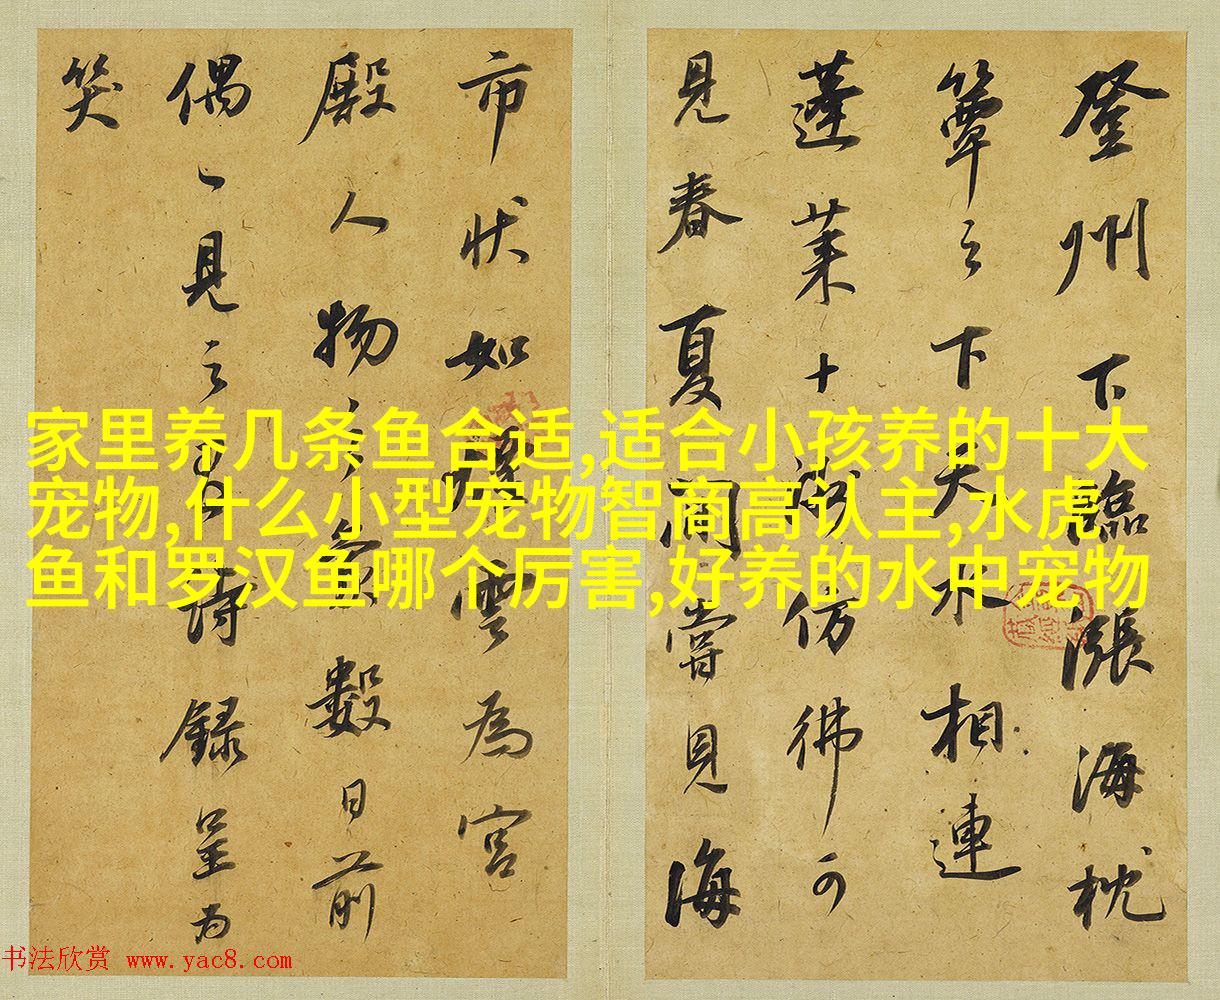 登州下臨漲海枕
簟之下天水相連
蓬莱十洲仿彿可
見春夏間嘗見海
市狀如雲為宮
殿人物之象數日前
偶一見之有詩録呈为
笑
家里养几条鱼合适,适合小孩养的十大
宠物,什么小型宠物智商高认主,水虎
鱼和罗汉鱼哪个厉害,好养的水中宠物
书法欣赏 www.yac8.com